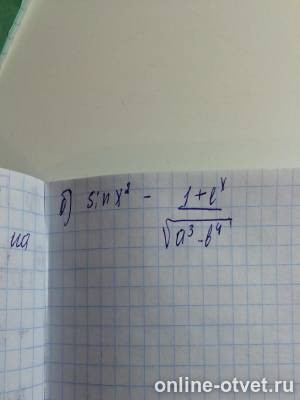 б) sin x² - (1+e^x)/√(a³-b⁴)
на
online-otvet.ru